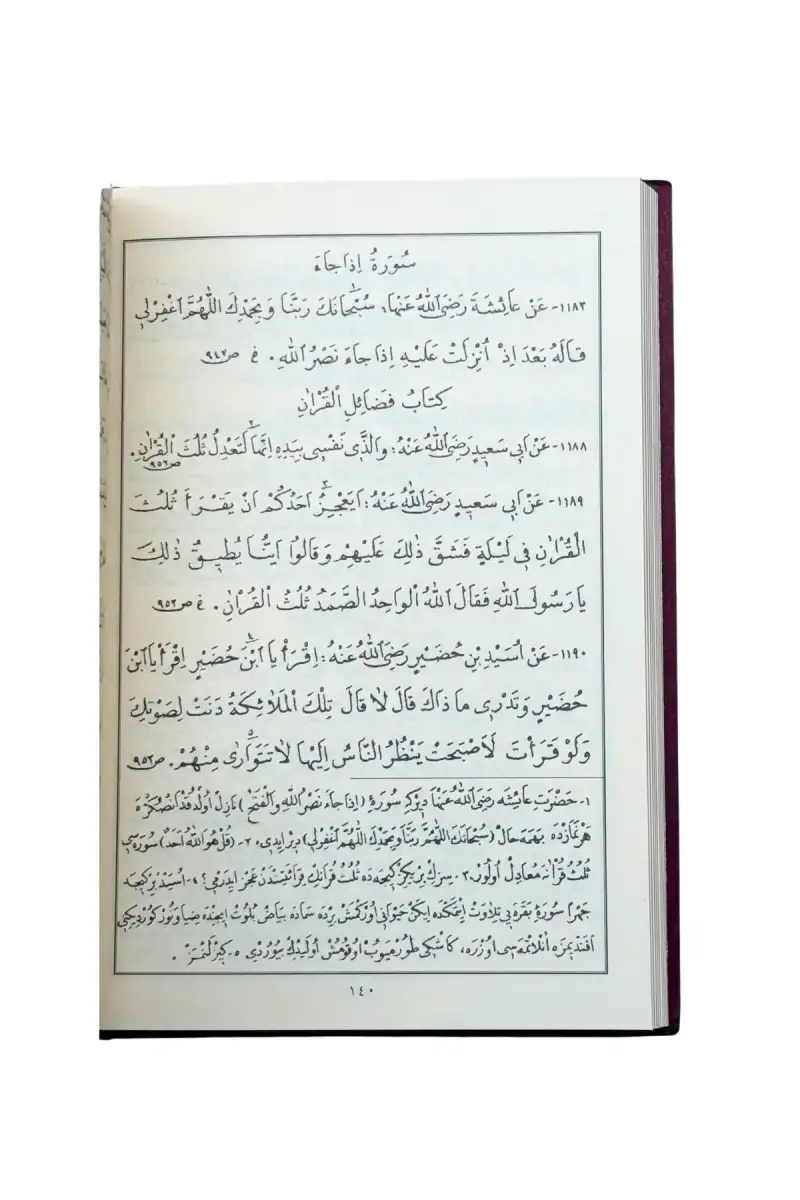 سُورَةُ اِذَا جَاءَ
١١٨٣- عَنْ عَائِشَةَ رَضِيَ اللّٰهُ عَنْهَا: سُبْحَانَكَ رَبَّنَا وَبِحَمْدِكَ اللّٰهُمَّ اغْفِرْلِى
قَالَهُ بَعْدَ اِذْ اُنْزِلَتْ عَلَيْهِ اِذَا جَاءَ نَصْرُ اللّٰهِ. خ ص٩٤٧
كِتَابُ فَضَائِلِ الْقُرْاٰنِ
١١٨٨- عَنْ اَبِى سَعِيدٍ رَضِيَ اللّٰهُ عَنْهُ: وَالَّذِى نَفْسِى بِيَدِهِ اِنَّهَا لَتَعْدِلُ ثُلُثَ الْقُرْاٰنِ. ص٩٥٢
١١٨٩- عَنْ اَبِى سَعِيدٍ رَضِيَ اللّٰهُ عَنْهُ: اَيَعْجِزُ اَحَدُكُمْ اَنْ يَقْرَأَ ثُلُثَ
الْقُرْاٰنِ فِى لَيْلَةٍ فَشَقَّ ذٰلِكَ عَلَيْهِمْ وَقَالُوا اَيُّنَا يُطِيقُ ذٰلِكَ
يَا رَسُولَ اللّٰهِ فَقَالَ اللّٰهُ الْوَاحِدُ الصَّمَدُ ثُلُثُ الْقُرْاٰنِ. خ ص٩٥٢
١١٩٠- عَنْ اُسَيْدِ بْنِ حُضَيْرٍ رَضِيَ اللّٰهُ عَنْهُ: اِقْرَأْ يَا ابْنَ حُضَيْرٍ اِقْرَأْ يَا ابْنَ
حُضَيْرٍ وَتَدْرِى مَا ذَاكَ قَالَ لَا قَالَ تِلْكَ الْمَلٰائِكَةُ دَنَتْ لِصَوْتِكَ
وَلَوْ قَرَأْتَ لَاَصْبَحَتْ يَنْظُرُ النَّاسُ اِلَيْهَا لَا تَتَوَارٰى مِنْهُمْ. ص٩٥٢
١- حَضْرَتِ عَائِشَه رَضِيَ اللّٰهُ عَنْهَا دِيرْكِه سُورَۀِ (اِذَا جَاءَ نَصْرُ اللّٰهِ وَالْفَتْحُ) نَازِلْ اُولْدُقْدَانْصُكْرَه
هَرْ نَمَازْدَه بَهَمَه حَالْ (سُبْحَانَكَ اللّٰهُمَّ رَبَّنَا وَبِحَمْدِكَ اللّٰهُمَّ اغْفِرْلِى) دِيرْ اِيدِى. ٢- (قُلْ هُوَ اللّٰهُ اَحَدٌ) سُورَه سِى
ثُلُثِ قُرْاٰنَه مُعَادِلْ اُولُورْ. ٣- سِزِكْ بِرِيكِزْ كِيجَه دَه ثُلُثِ قُرْاٰنِكْ قِرَائَتِنْدَنْ عَجْزْ اِيدَرْمِى؟ ٤- اُسَيْدْ بِرْ كِيجَه
جَهْرًا سُورَۀِ بَقَرَه يِى تِلَاوَتْ اِيتْمَكْدَه اِيكَنْ حَيْوَانِى اُورْكْمَشْ بِرْدَه سَمَادَه بَيَاضْ بُلُوتْ اِيچِنْدَه ضِيَا وَنُورْ كُورْدِيكِنِى
اَفَنْدِيمِزَه اَنْلَاتْمَه سِى اُوزْرَه، كَاشْكِى طُورْمَيُوبْ اُوقُومُشْ اُولَيْدِكْ بُيُورْدِى ٥- كِيزْلَنْمَزْ.
١٤٠